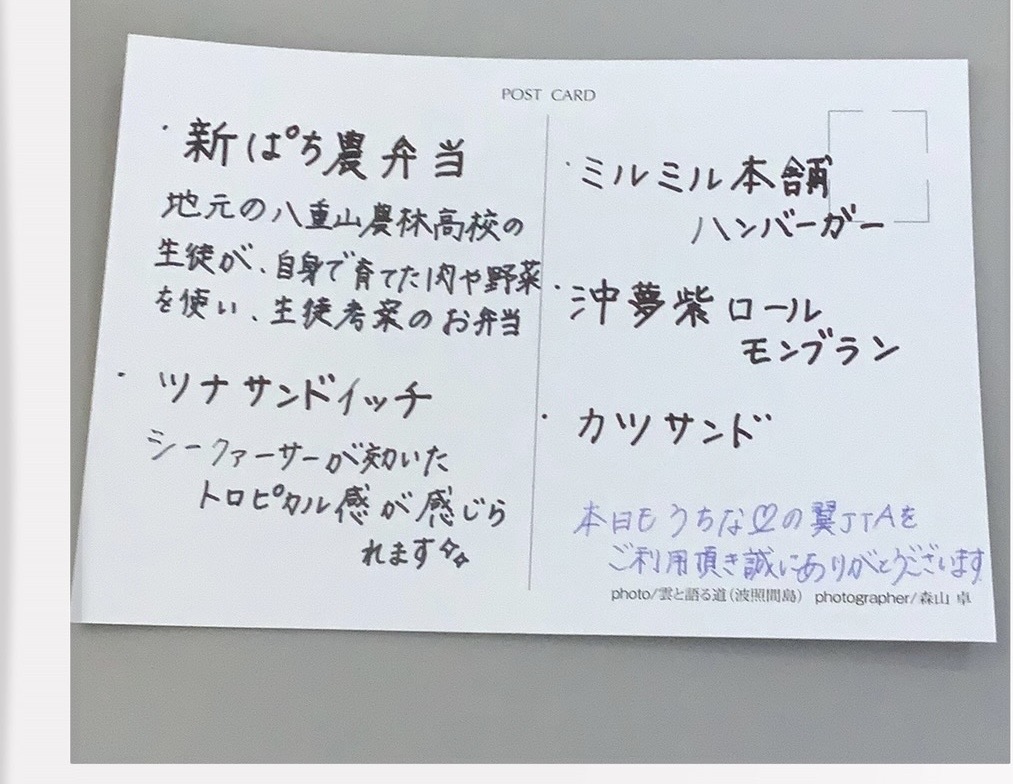 POST CARD
・新ぱち農弁当
地元の八重山農林高校の
生徒が、自身で育てた肉や野菜
を使い、生徒考案のお弁当
・ツナサンドイッチ
シークァーサーが効いた
トロピカル感が感じら
れます
・ミルミル本舗
ハンバーガー
・沖夢紫ロール
モンブラン
・カツサンド
本日もうちな♡の翼JTAを
ご利用頂き誠にありがとうございます
photo/雲と語る道(波照間島) photographer/森山 卓